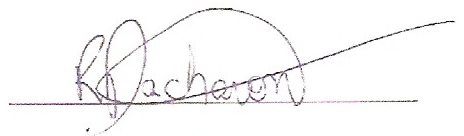 R Dacharon